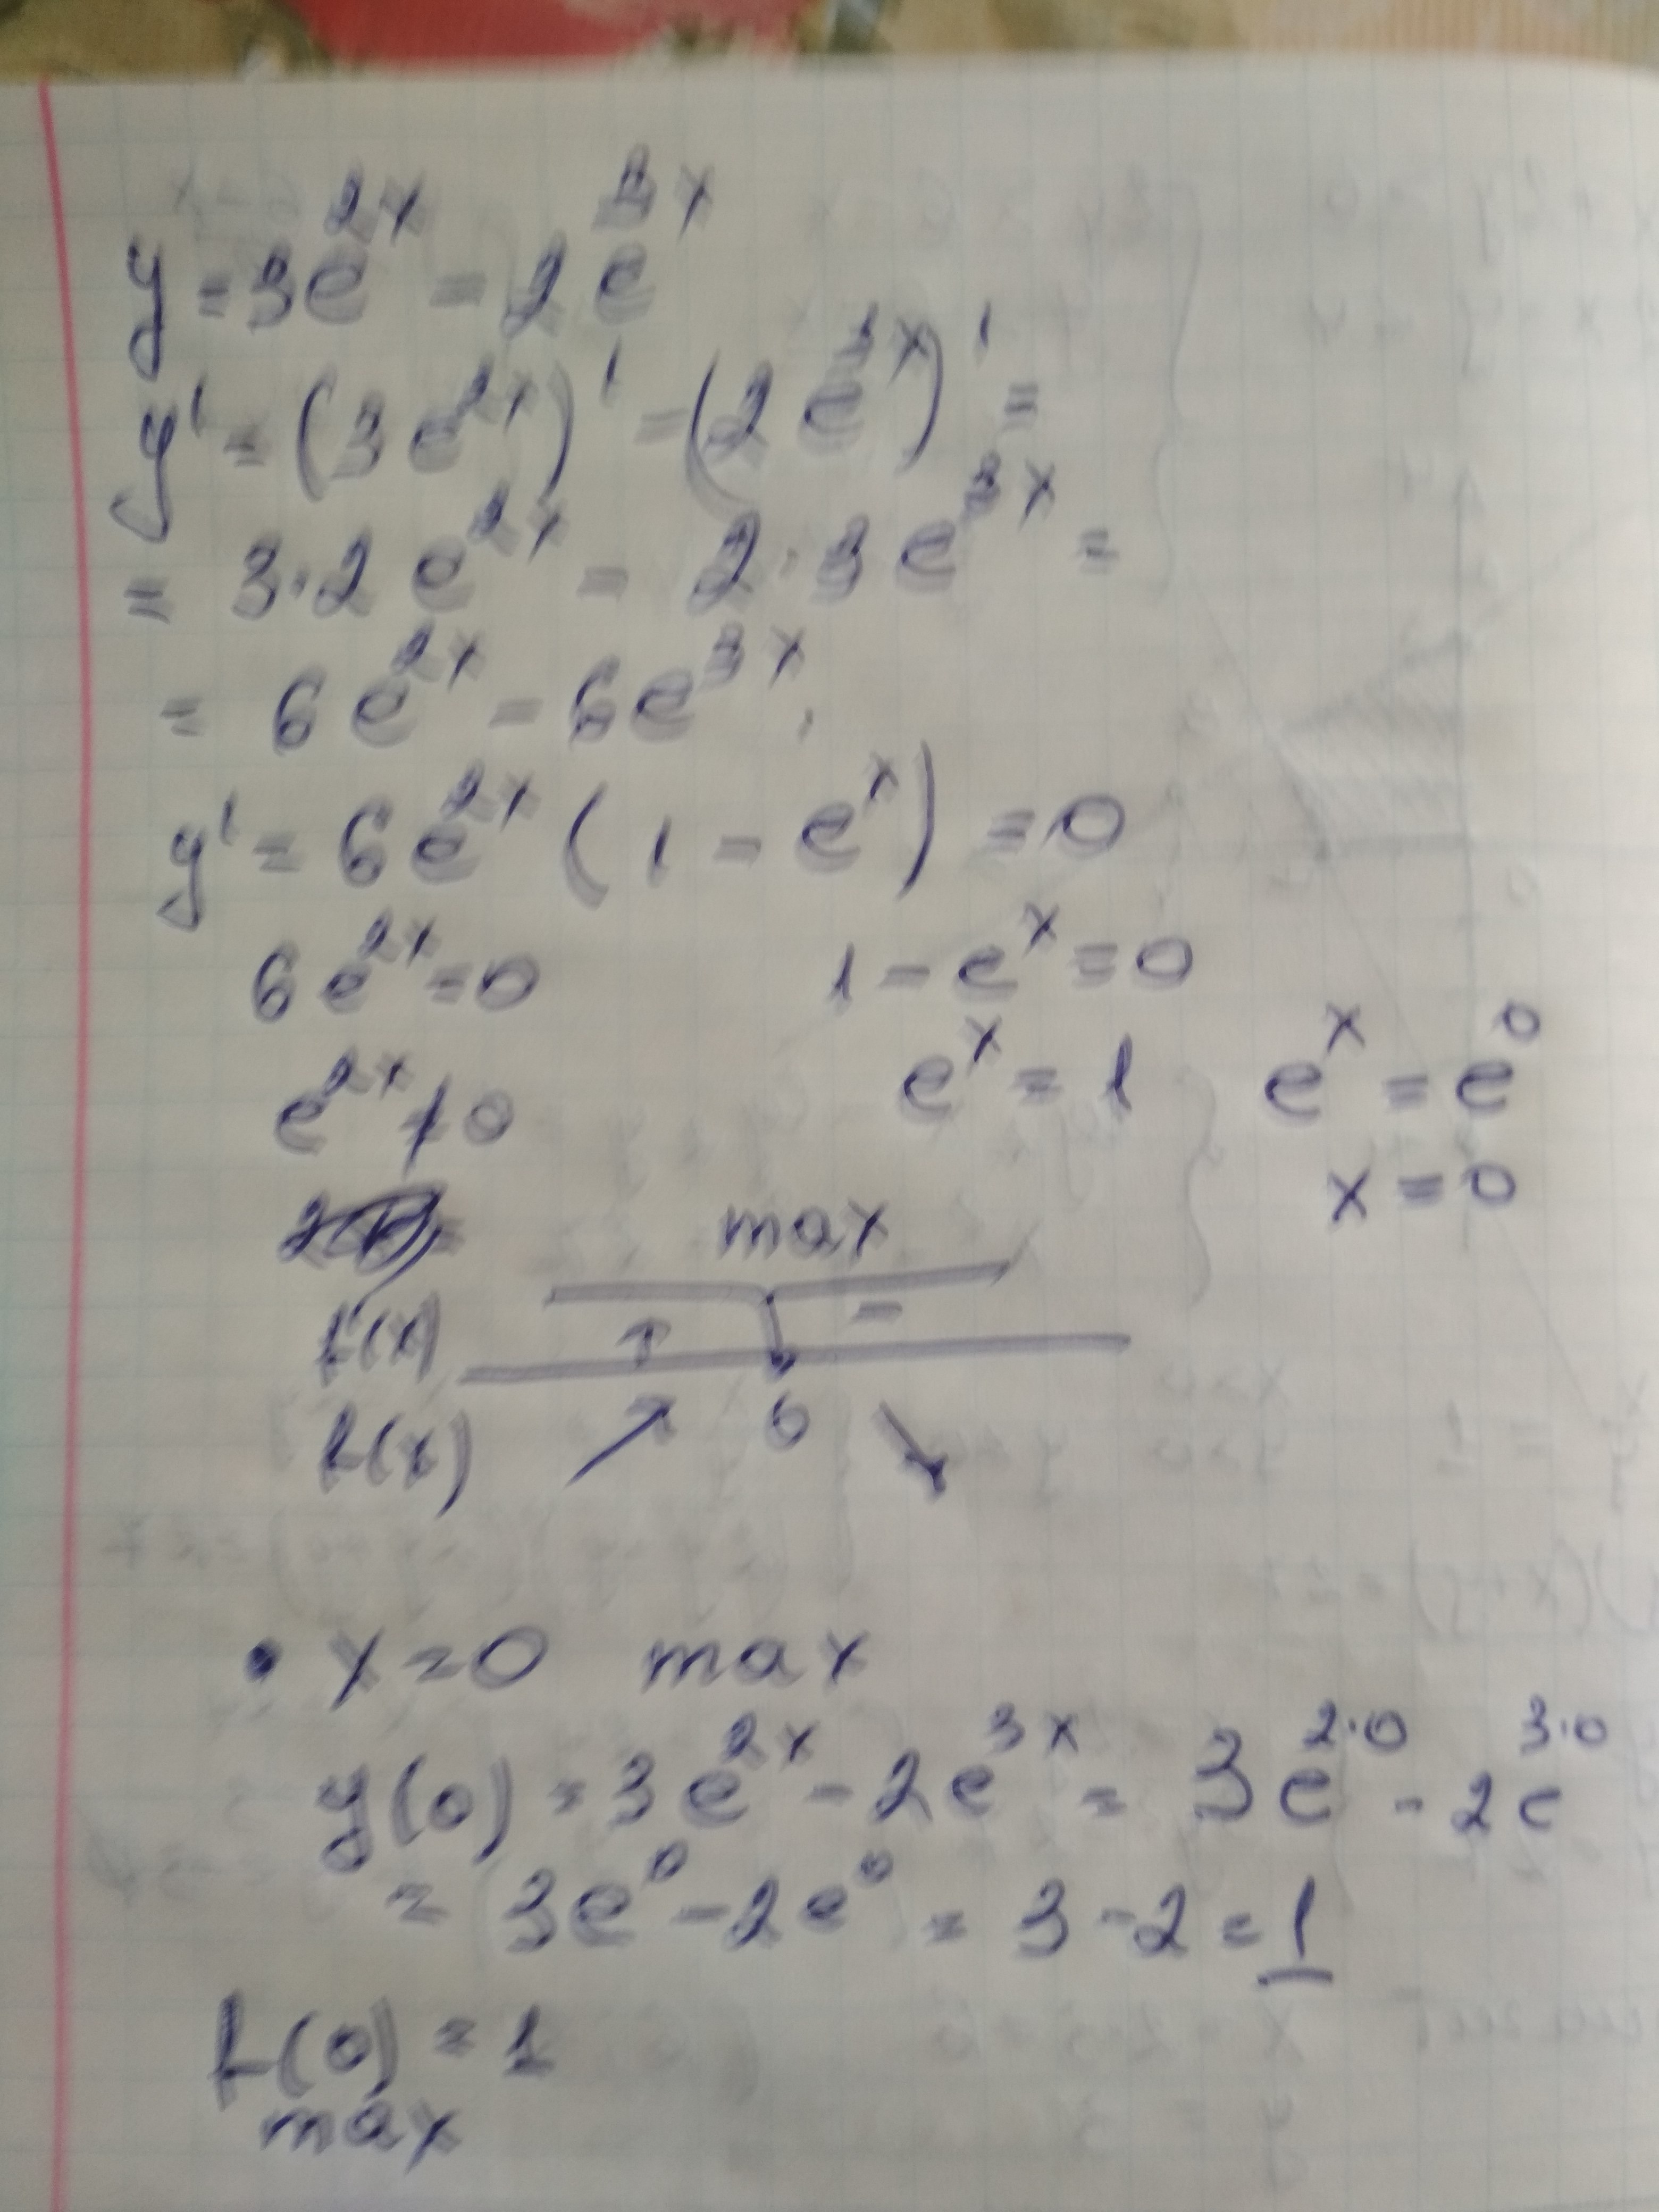 y = 3e^{2x} - 2e^{3x}
y' = (3e^{2x})' - (2e^{3x})' =
= 3·2e^{2x} - 2·3e^{3x} =
= 6e^{2x} - 6e^{3x}
y' = 6e^{2x}(1 - e^x) = 0
6e^{2x} = 0 1 - e^x = 0
e^{2x} ≠ 0 e^x = 1 e^x = e^0
x = 0
max
f'(x) + -
f(x) ↗ 0 ↘
• x = 0 max
y(0) = 3e^{2x} - 2e^{3x} = 3e^{2·0} - 2e^{3·0}
= 3e^0 - 2e^0 = 3 - 2 = 1
f(0) = 1
max